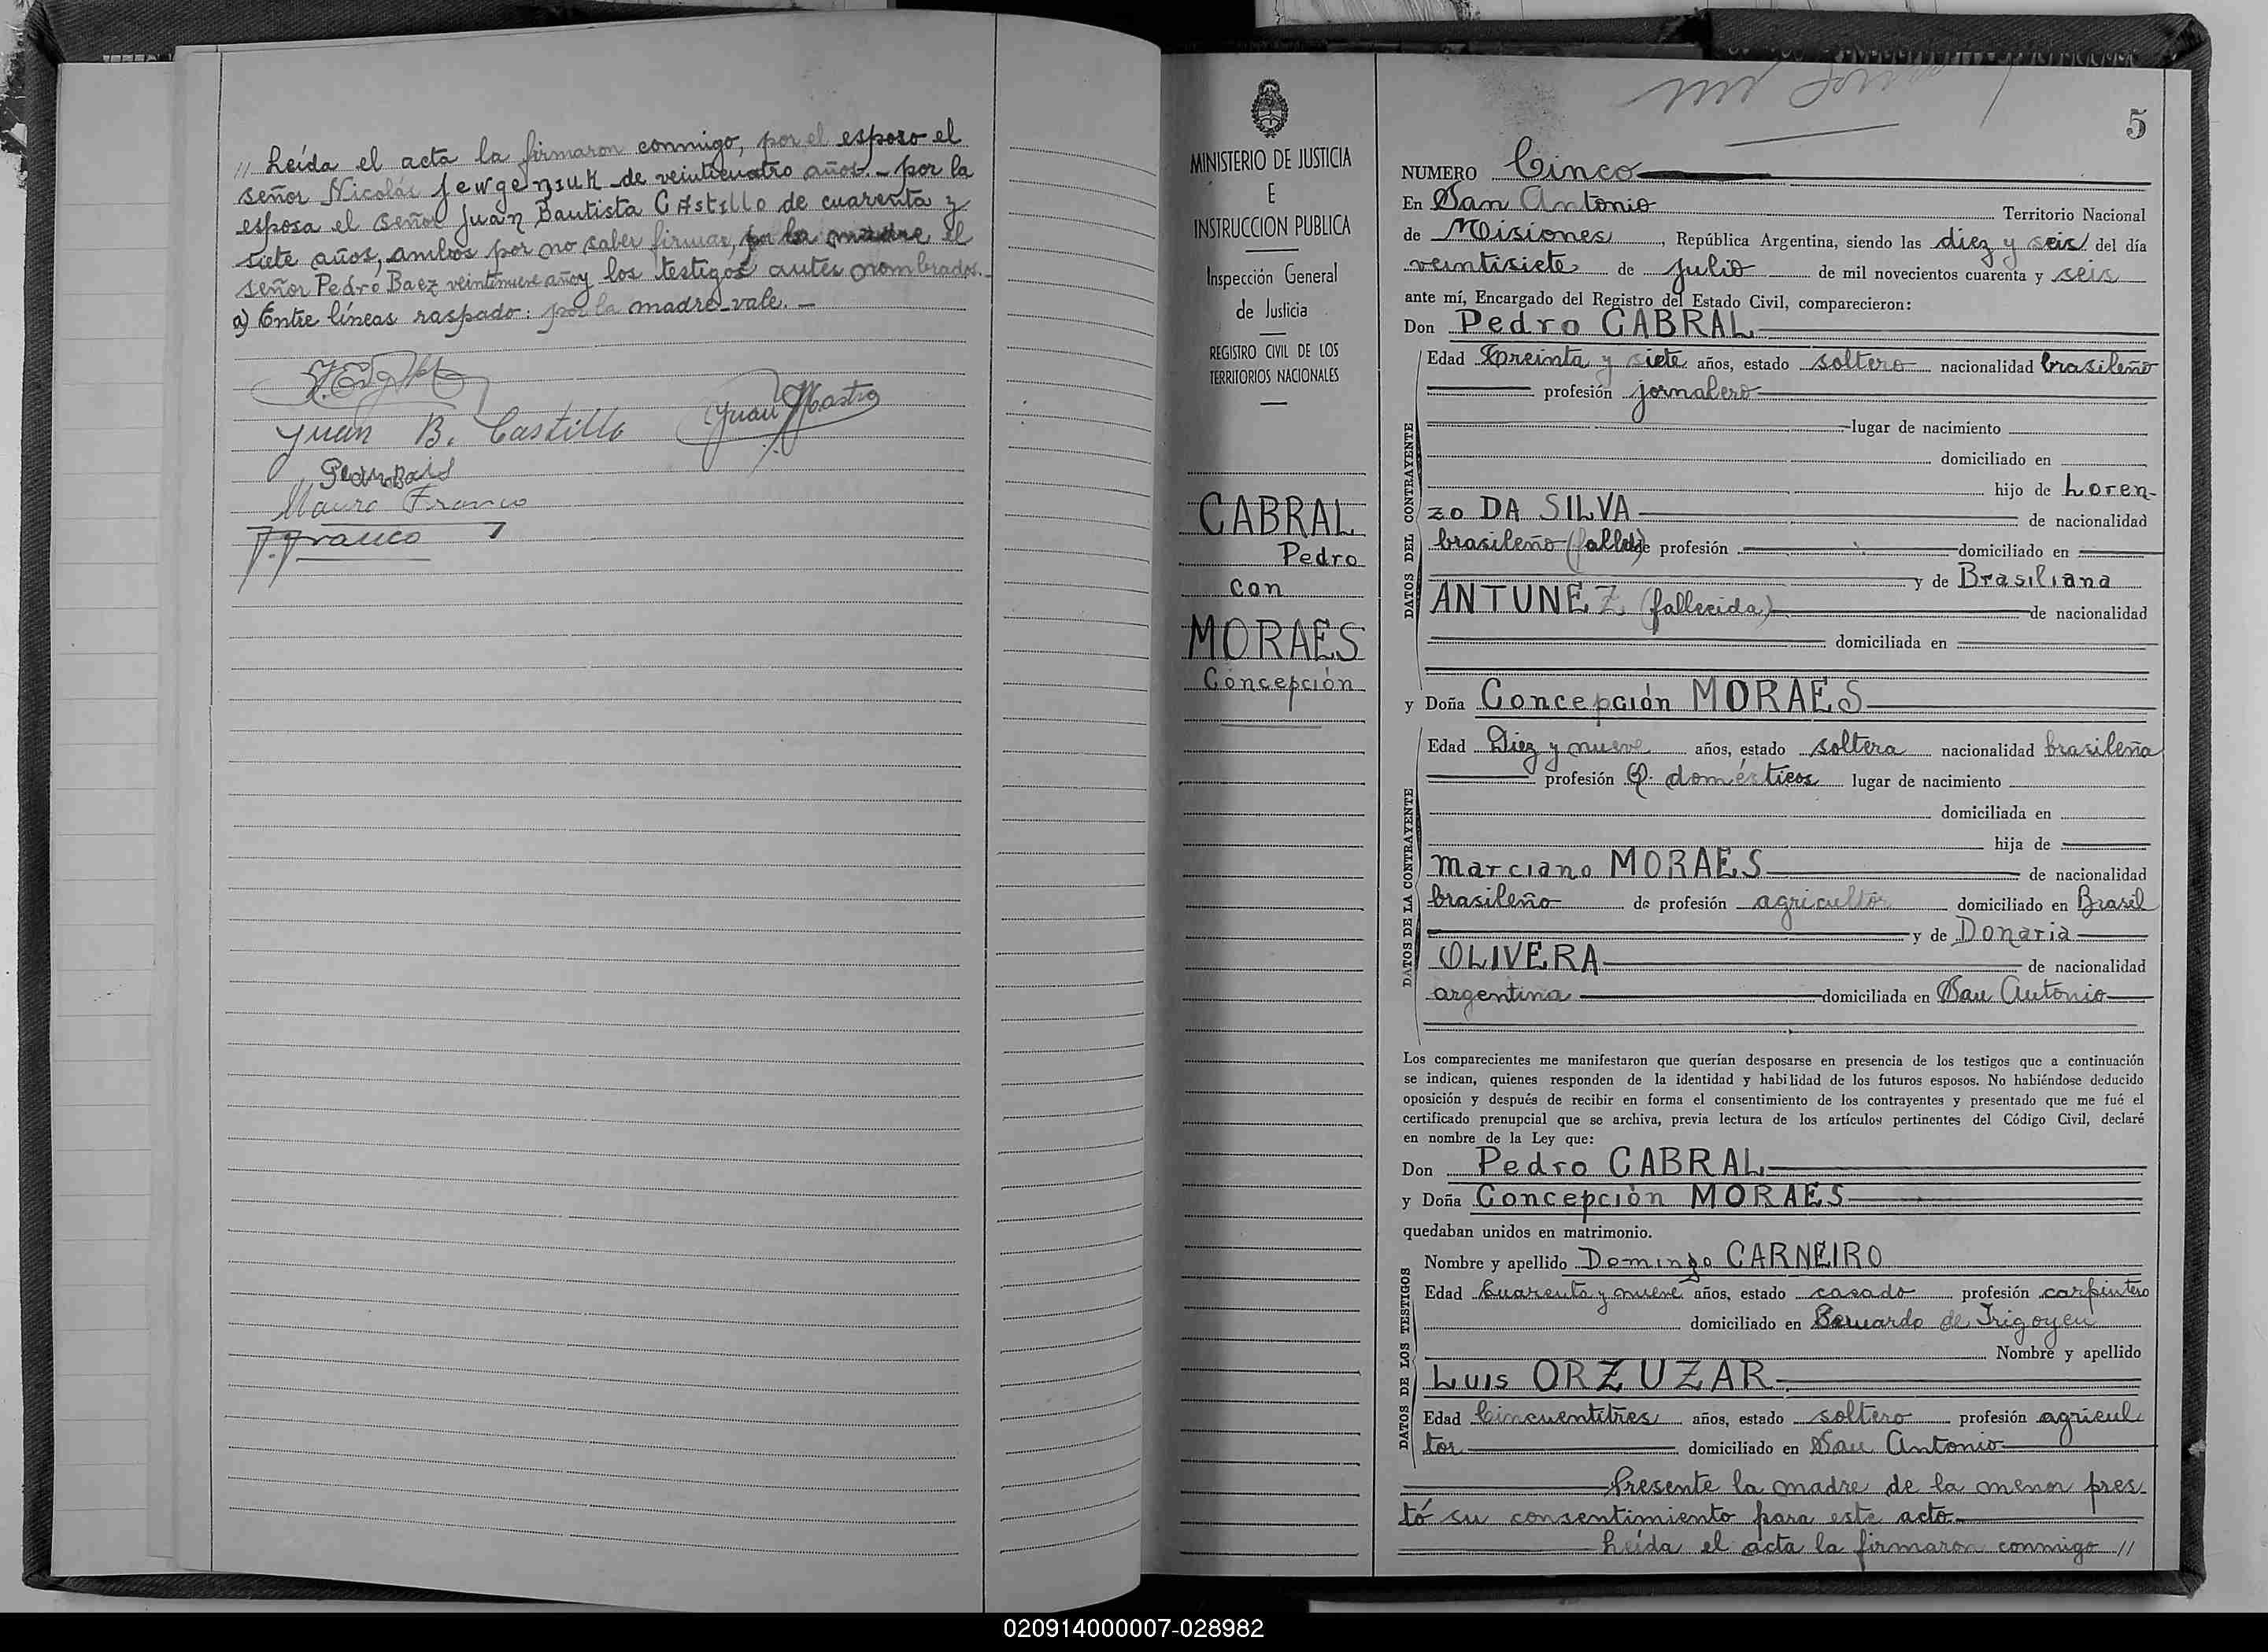 // Leída el acta la firmaron conmigo, por el esposo el
señor Nicolás Jewgeniuk de veinticuatro años.- por la
esposa el señor Juan Bautista CAstillo de cuarenta y
siete años, ambos por no saber firmar, por la madre el
señor Pedro Baez veintinueve años y los testigos antes nombrados.-
a) Entre líneas raspado: por la madre-vale.-
Juan B. Castillo
Mauro Franco
J. Franco
MINISTERIO DE JUSTICIA
E
INSTRUCCION PUBLICA
Inspección General
de Justicia
REGISTRO CIVIL DE LOS
TERRITORIOS NACIONALES
CABRAL
Pedro
con
MORAES
Concepción
5
NUMERO Cinco
En San Antonio Territorio Nacional
de Misiones, República Argentina, siendo las diez y seis del día
veintisiete de julio de mil novecientos cuarenta y seis
ante mí, Encargado del Registro del Estado Civil, comparecieron:
Don Pedro CABRAL
DATOS DEL CONTRAYENTE
Edad Treinta y siete años, estado soltero nacionalidad brasileño
profesión jornalero
lugar de nacimiento
domiciliado en
hijo de Loren-
zo DA SILVA de nacionalidad
brasileño (falld) de profesión domiciliado en
y de Brasiliana
ANTUNEZ (fallecida) de nacionalidad
domiciliada en
y Doña Concepción MORAES
DATOS DE LA CONTRAYENTE
Edad Diez y nueve años, estado soltera nacionalidad brasileña
profesión Q. domésticos lugar de nacimiento
domiciliada en
hija de
Marciano MORAES de nacionalidad
brasileño de profesión agricultor domiciliado en Brasil
y de Donaria
OLIVERA de nacionalidad
argentina domiciliada en San Antonio
Los comparecientes me manifestaron que querían desposarse en presencia de los testigos que a continuación
se indican, quienes responden de la identidad y habilidad de los futuros esposos. No habiéndose deducido
oposición y después de recibir en forma el consentimiento de los contrayentes y presentado que me fué el
certificado prenupcial que se archiva, previa lectura de los artículos pertinentes del Código Civil, declaré
en nombre de la Ley que:
Don Pedro CABRAL
y Doña Concepción MORAES
quedaban unidos en matrimonio.
DATOS DE LOS TESTIGOS
Nombre y apellido Domingo CARNEIRO
Edad Cuarenta y nueve años, estado casado profesión carpintero
domiciliado en Bernardo de Irigoyen
Nombre y apellido
Luis ORZUZAR
Edad Cincuentitres años, estado soltero profesión agricul
tor domiciliado en San Antonio
Presente la madre de la menor pres-
tó su consentimiento para este acto.-
Leída el acta la firmaron conmigo //
020914000007-028982